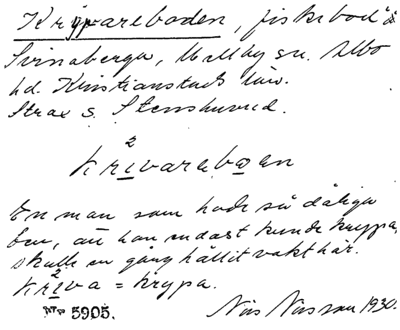 Krypareboden, fiskebod i
Svinaberga, Mellby sn. Albo
hd. Kristianstads län.
Strax s. Stenshuvud.
2
krivareboen
En man som hade så dåliga
ben, att han endast kunde krypa,
skulle en gång hållit vakt här.
kriva = krypa.
5905. Nils Nilsson 1930.